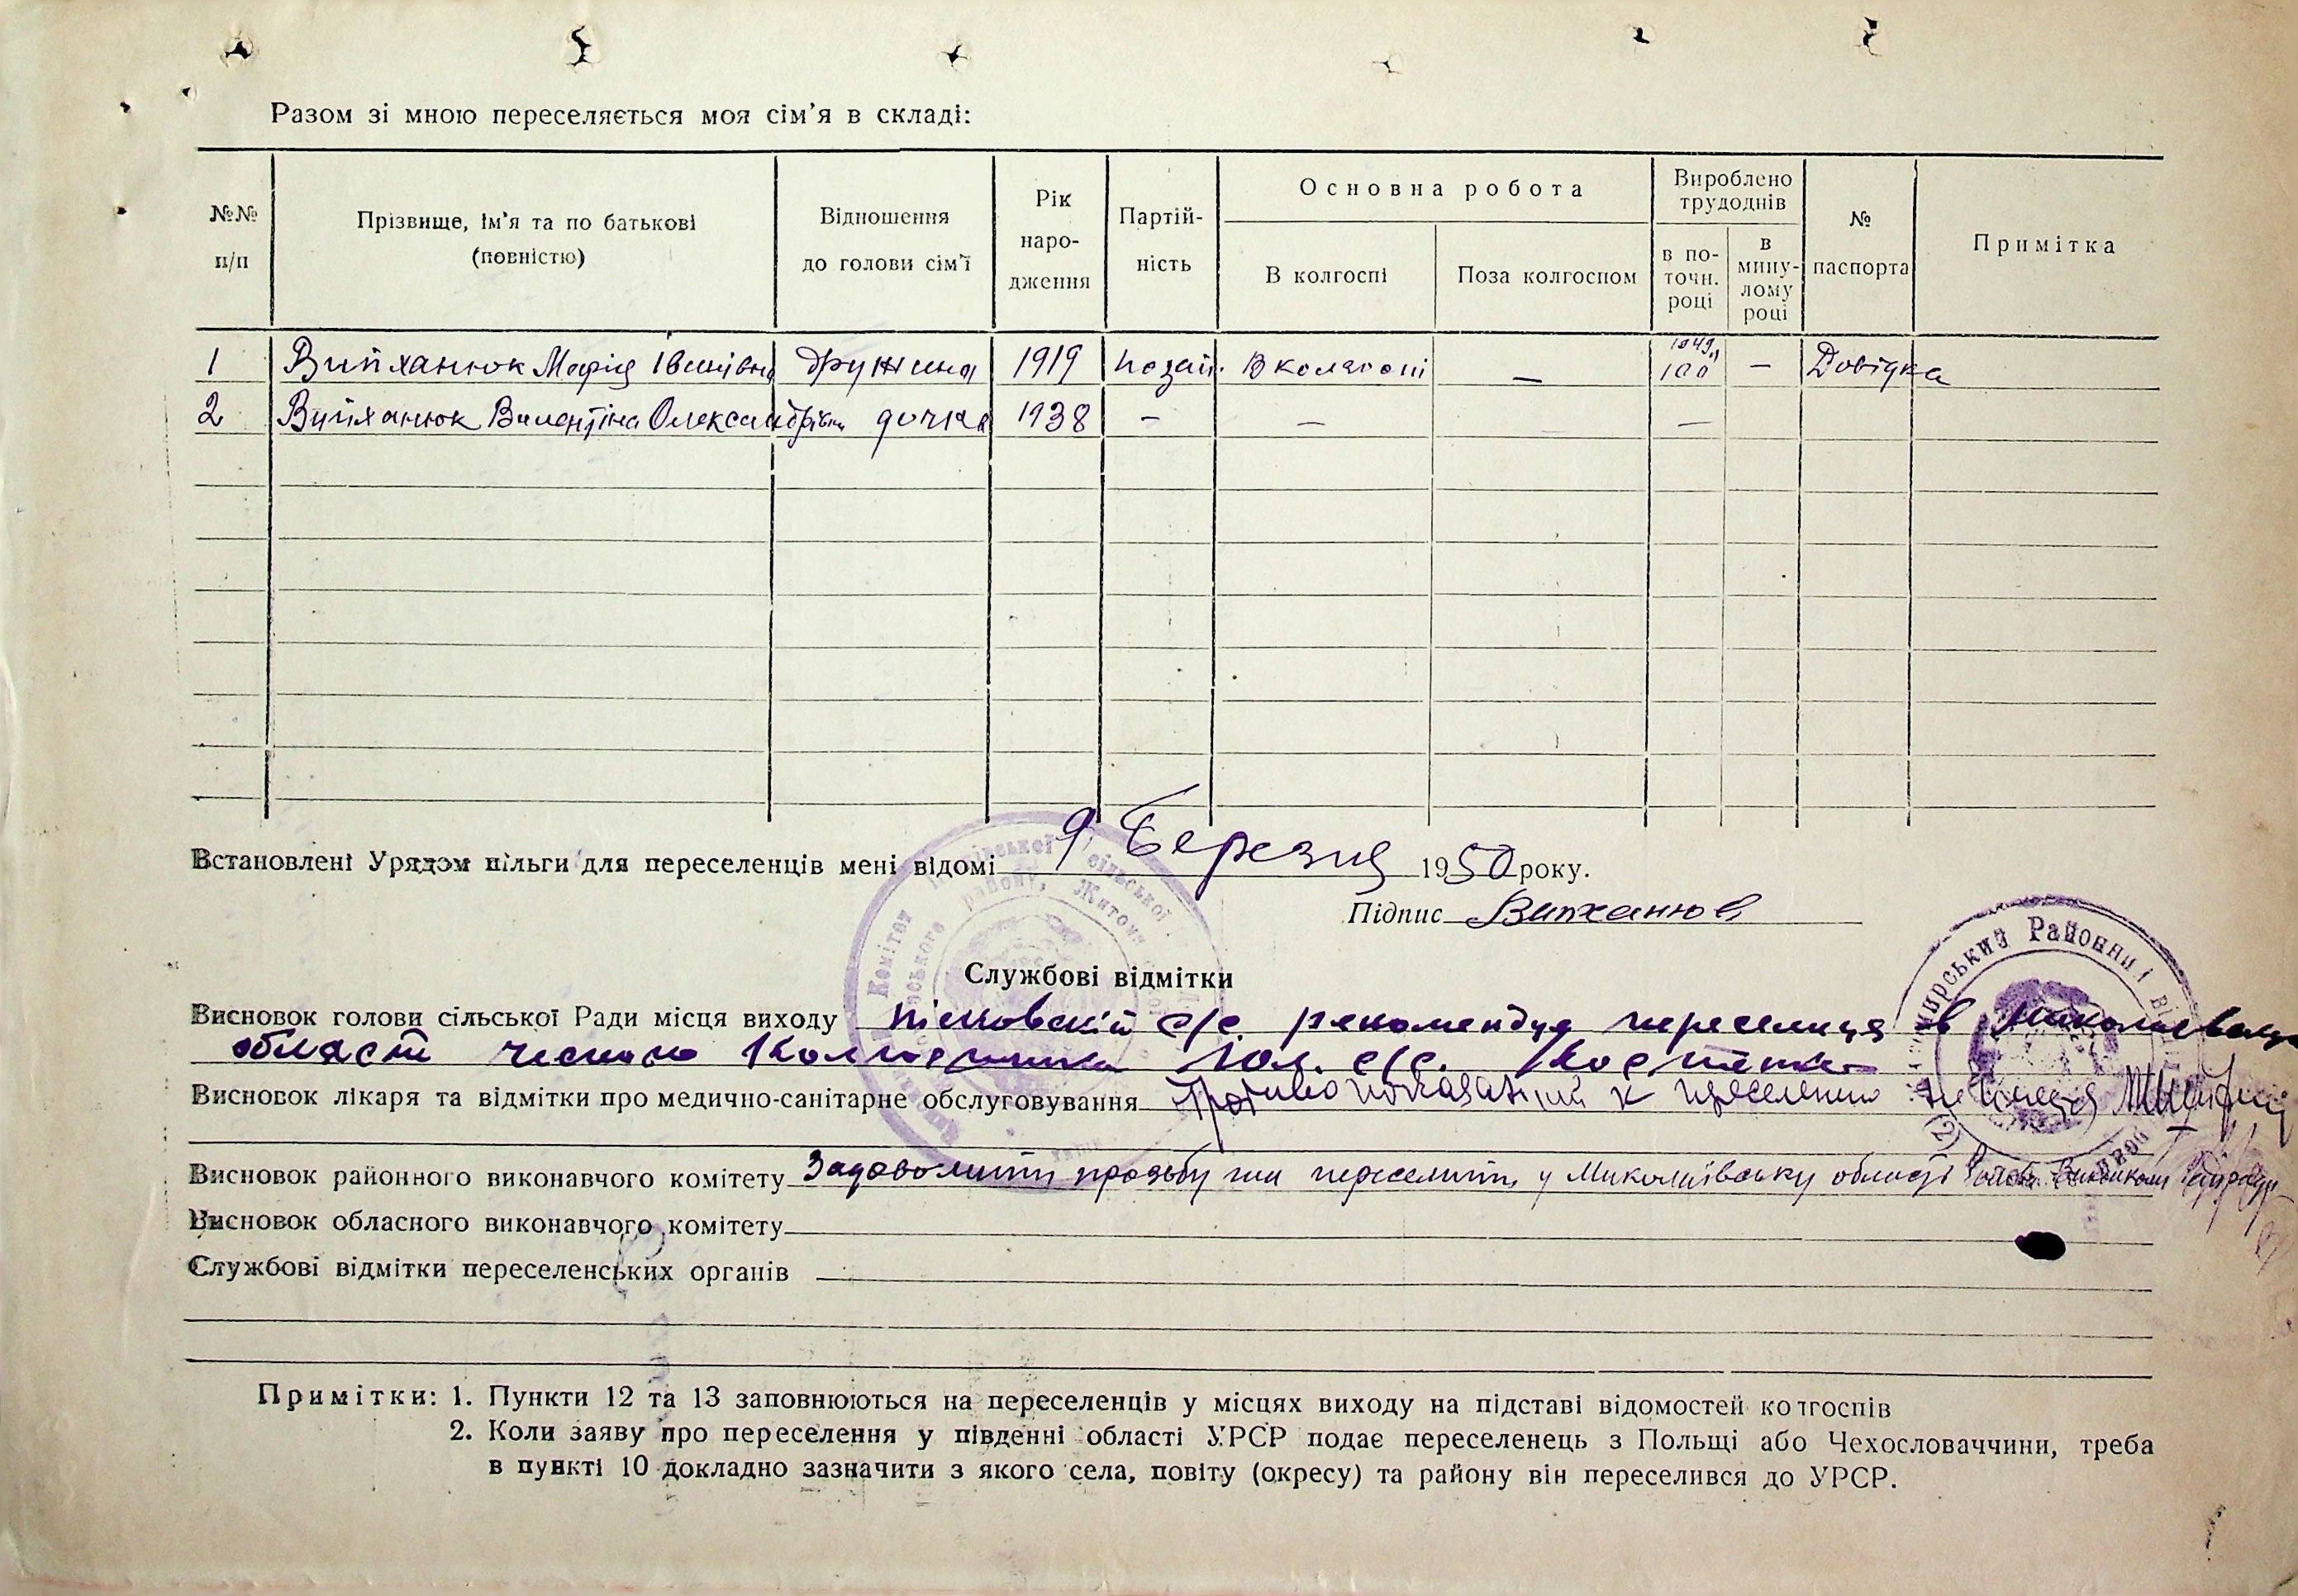 Разом зі мною переселяється моя сім'я в складі:
№№ п/п
Прізвище, ім'я та по батькові (повністю)
Відношення до голови сім'ї
Рік народження
Партійність
Основна робота
В колгоспі
Поза колгоспом
Вироблено трудоднів
в поточн. році
в минулому році
№ паспорта
Примітка
1 Вийханюк Марія Іванівна дружина 1919 позап. В колгоспі — 1949 100 — Довідка
2 Вийханюк Валентіна Олександрівна дочка 1938 — — —
Встановлені Урядом пільги для переселенців мені відомі 9 Березня 1950 року.
Підпис
Службові відмітки
Висновок голови сільської Ради місця виходу с/с рекомендує переселиця в
області чесного Колгоспника Гол. с/с.
Висновок лікаря та відмітки про медично-санітарне обслуговування к
Висновок районного виконавчого комітету Задовольнити просьбу переселити у Миколаївську область
Висновок обласного виконавчого комітету
Службові відмітки переселенських органів
Примітки: 1. Пункти 12 та 13 заповнюються на переселенців у місцях виходу на підставі відомостей колгоспів
2. Коли заяву про переселення у південні області УРСР подає переселенець з Польщі або Чехословаччини, треба
в пункті 10 докладно зазначити з якого села, повіту (окресу) та району він переселився до УРСР.